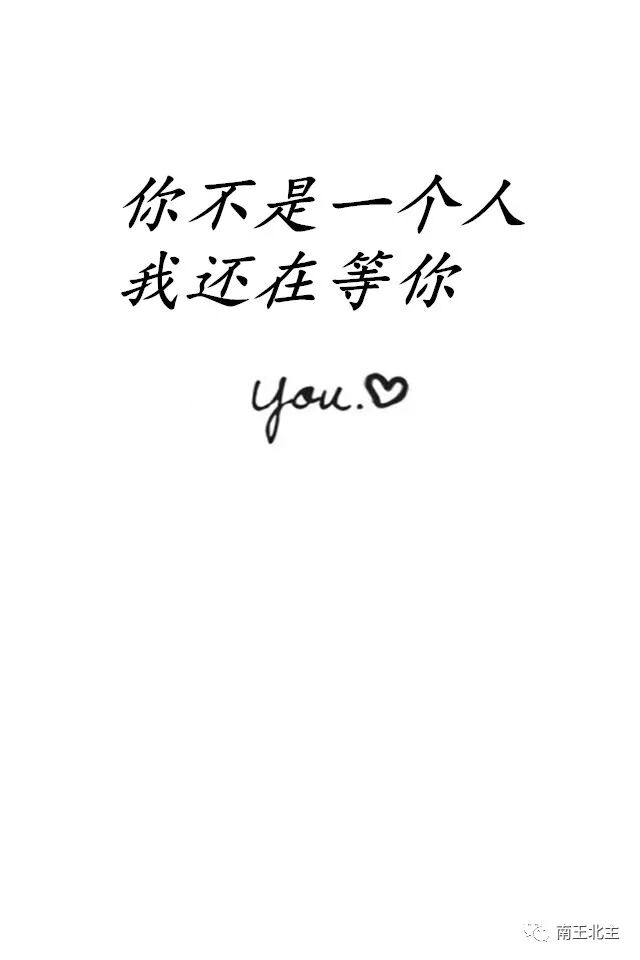 你不是一个人
我还在等你
you.♡
南王北主